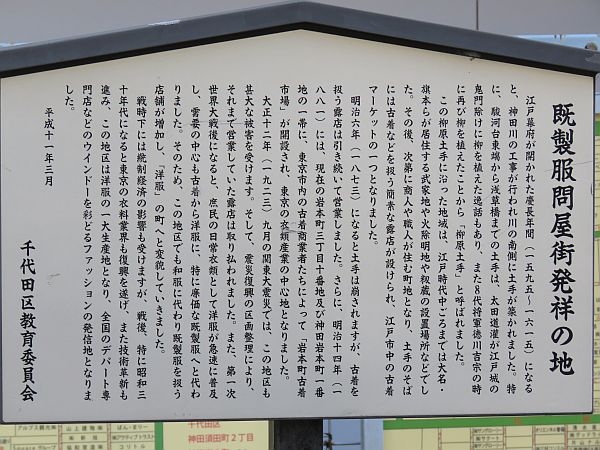 既製服問屋街発祥の地
江戸幕府が開かれた慶長年間（一五九五～一六一五）になる
と、神田川の工事が行われ川の南側に土手が築かれました。特
に、駿河台東端から浅草橋までの土手は、太田道灌が江戸城の
鬼門除けに柳を植えた逸話もあり、また８代将軍徳川吉宗の時
に再び柳を植えたことから「柳原土手」と呼ばれました。
この柳原土手に沿った地域は、江戸時代中ごろまでは大名・
旗本らが居住する武家地や火除明地や籾蔵の設置場所などでし
た。その後、次第に商人や職人が住む町地となり、土手のそば
には古着などを扱う簡素な露店が設けられ、江戸市中の古着
マーケットの一つとなりました。
明治六年（一八七三）になると土手は崩されますが、古着を
扱う露店は引き続いて営業しました。さらに、明治十四年（一
八八一）には、現在の岩本町三丁目十番地及び神田岩本町一番
地の一帯に、東京市内の古着商業者たちによって「岩本町古着
市場」が開設され、東京の衣類産業の中心地となりました。
大正十二年（一九二三）九月の関東大震災では、この地区も
甚大な被害を受けます。そして、震災復興の区画整理により、
それまで営業していた露店は取り払われました。また、第一次
世界大戦後になると、庶民の日常衣類として洋服が急速に普及
し、需要の中心も古着から洋服に、特に廉価な既製服へと代わ
りました。そのため、この地区でも和服に代わり既製服を扱う
店舗が増加し、「洋服」の町へと変貌していきました。
戦時下には統制経済の影響も受けますが、戦後、特に昭和三
十年代になると東京の衣料業界も復興を遂げ、また技術革新も
進み、この地区は洋服の一大生産地となり、全国のデパート専
門店などのウインドーを彩どるファッションの発信地となりま
した。
平成十一年三月
千代田区教育委員会
千代田区
神田須田町２丁目